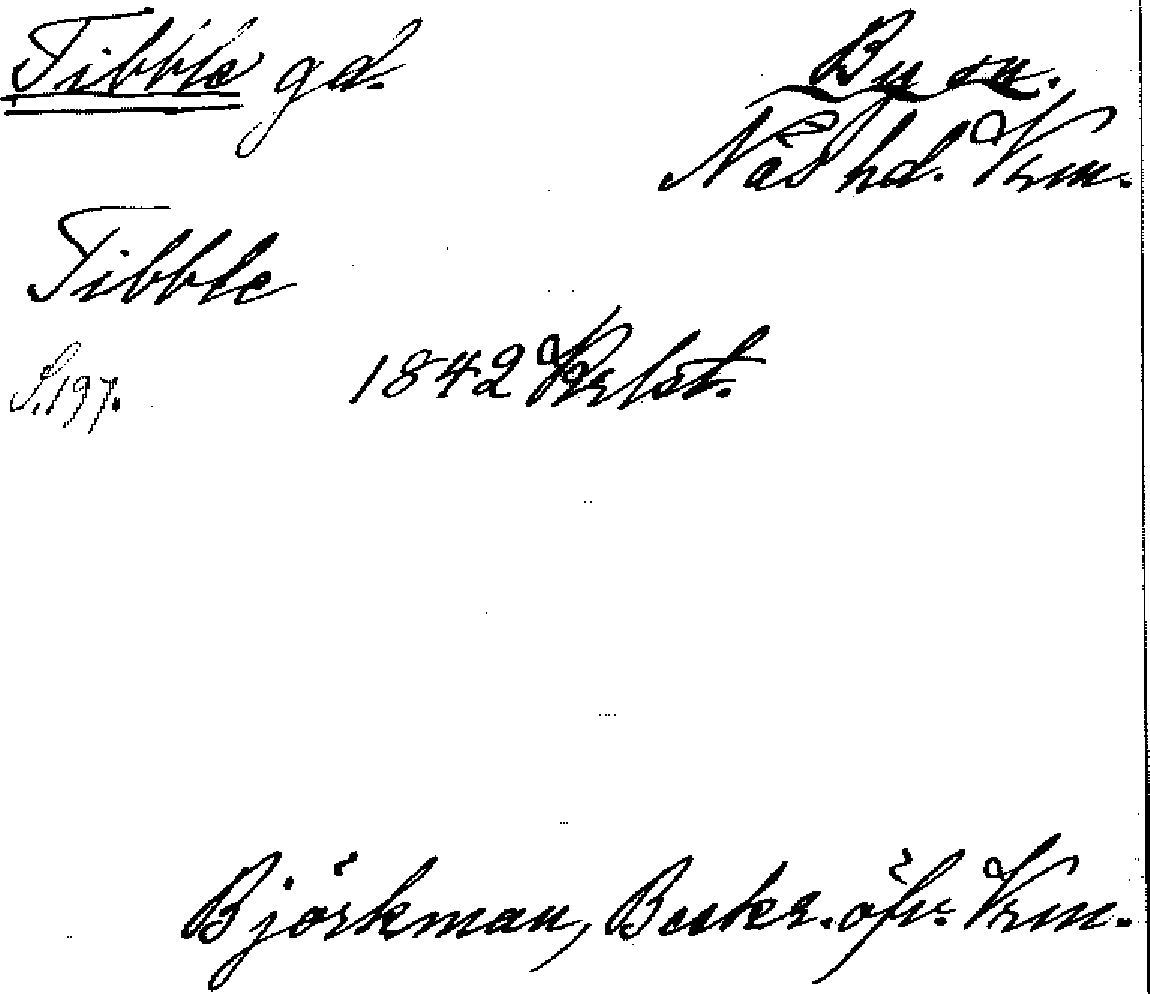 Tibble gd.
By sn.
Näs hd. Vrm.
Tibble
S. 197.
1842 Krlst.
Björkman, Beskr. öfv. Vrm.